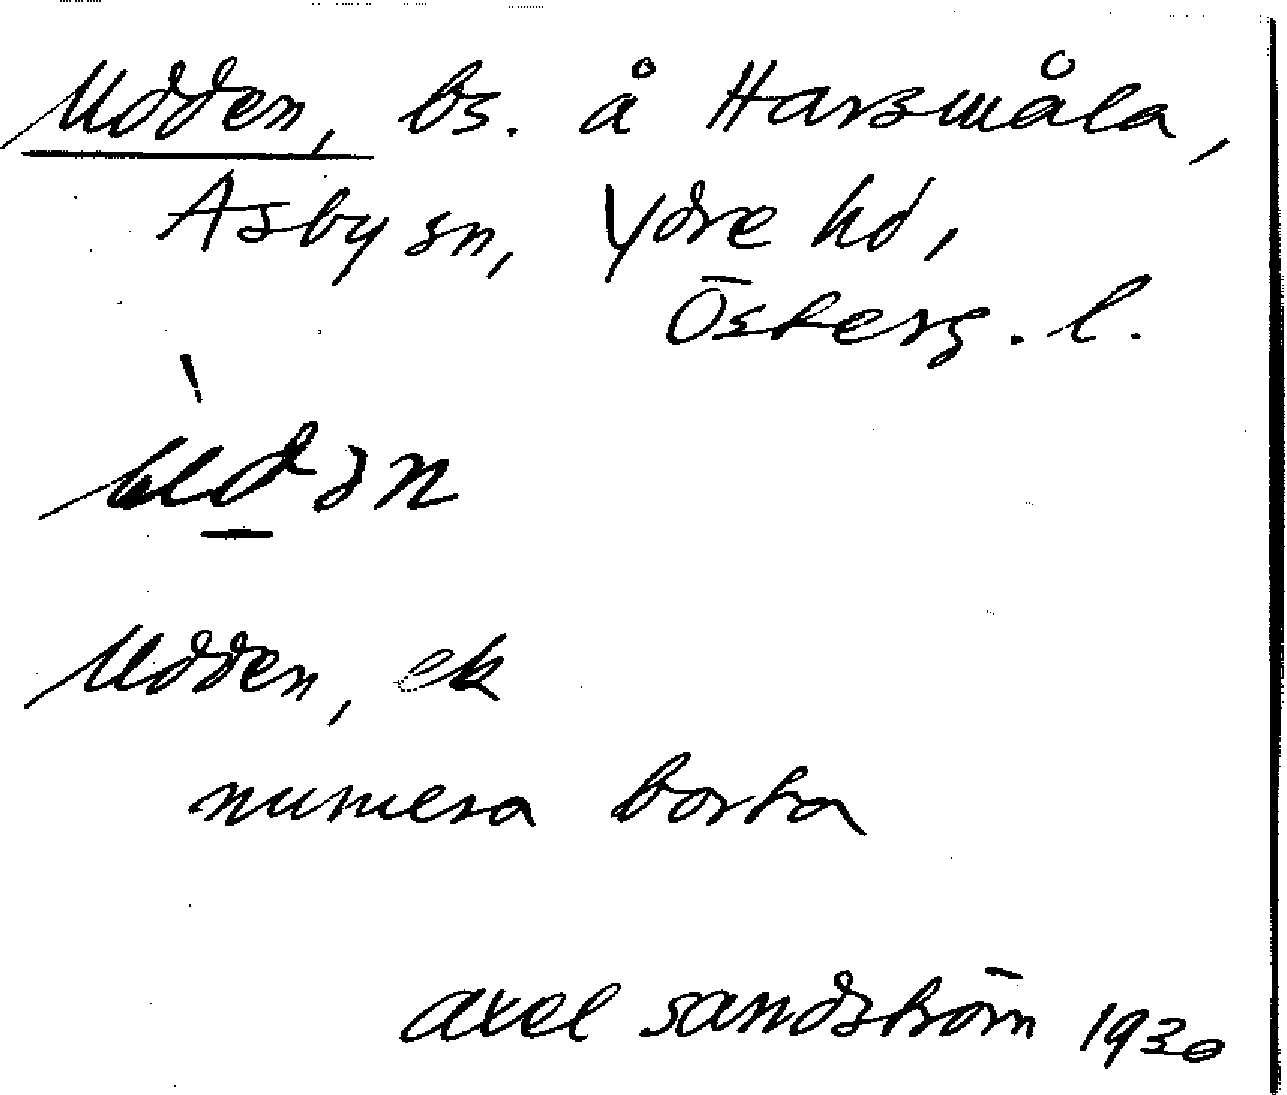 Udden, bs. å Harsmåla,
Asby sn, Ydre hd,
Österg. l.
ùdən
Udden, ek
numera borta
axel sandström 1930